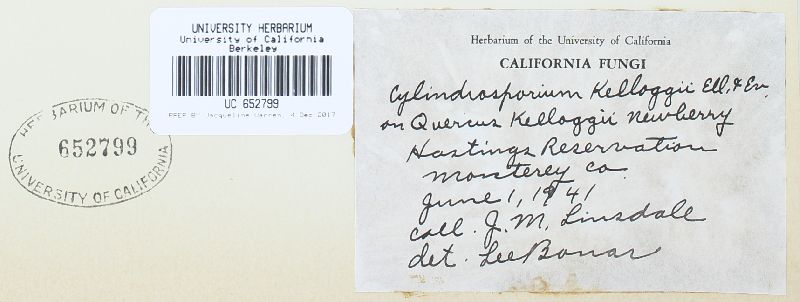 UNIVERSITY HERBARIUM
University of California
Berkeley
UC 652799
PREP BY Jacqueline Warren, 4 Dec 2017
HERBARIUM OF THE
652799
UNIVERSITY OF CALIFORNIA
Herbarium of the University of California
CALIFORNIA FUNGI
Cylindrosporium Kelloggii Ell. & Ev.
on Quercus Kelloggii Newberry
Hastings Reservation
Monterey Co.
June 1, 1941
coll. J. M. Linsdale
det. Lee Bonar